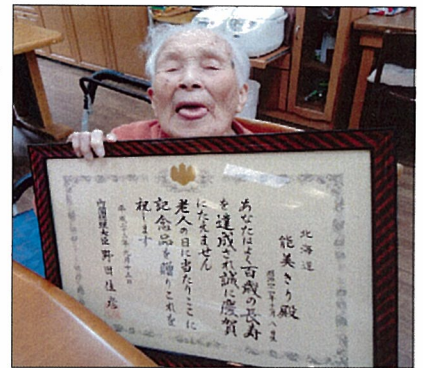 北海道
能美きり殿
あなたはよく百歳の長寿
を達成され誠に慶賀
にたえません
老人の日に当たりここに
記念品を贈りこれを
祝します
年九月十五日
内閣総理大臣 野田佳彦